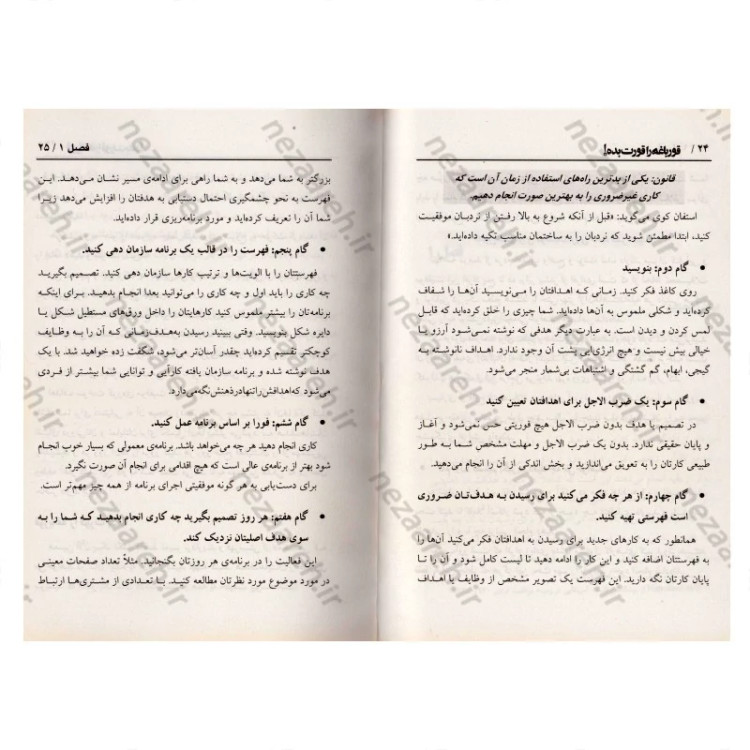 ۲۴ / قورباغه را قورت بده!
قانون: یکی از بدترین راه‌های استفاده از زمان آن است که
کاری غیرضروری را به بهترین صورت انجام دهیم.
استفان کوی می‌گوید: «قبل از آنکه شروع به بالا رفتن از نردبان موفقیت
کنید، ابتدا مطمئن شوید که نردبان را به ساختمان مناسب تکیه داده‌اید.»
• گام دوم: بنویسید
روی کاغذ فکر کنید. زمانی که اهدافتان را می‌نویسید آن‌ها را شفاف
کرده‌اید و شکلی ملموس به آن‌ها داده‌اید. شما چیزی را خلق کرده‌اید که قابل
لمس کردن و دیدن است. به عبارت دیگر هدفی که نوشته نمی‌شود آرزو یا
خیالی بیش نیست و هیچ انرژی‌ایی پشت آن وجود ندارد. اهداف نانوشته به
گیجی، ابهام، گم گشتگی و اشتباهات بی‌شمار منجر می‌شود.
• گام سوم: یک ضرب الاجل برای اهدافتان تعیین کنید
در تصمیم یا هدف بدون ضرب الاجل هیچ فوریتی حس نمی‌شود و آغاز
و پایان حقیقی ندارد. بدون یک ضرب الاجل و مهلت مشخص شما به طور
طبیعی کارتان را به تعویق می‌اندازید و بخش اندکی از آن را انجام می‌دهید.
• گام چهارم: از هر چه فکر می‌کنید برای رسیدن به هدف‌تان ضروری
است فهرستی تهیه کنید.
همانطور که به کارهای جدید برای رسیدن به اهدافتان فکر می‌کنید آن‌ها را
به فهرستتان اضافه کنید و این کار را ادامه دهید تا لیست کامل شود و آن را تا
پایان کارتان نگه دارید. این فهرست یک تصویر مشخص از وظایف یا اهداف
فصل ۱ / ۲۵
بزرگتر به شما می‌دهد و به شما راهی برای ادامه‌ی مسیر نشان می‌دهد. این
فهرست به نحو چشمگیری احتمال دستیابی به هدفتان را افزایش می‌دهد زیرا
شما آن را تعریف کرده‌اید و مورد برنامه‌ریزی قرار داده‌اید.
• گام پنجم: فهرست را در قالب یک برنامه سازمان دهی کنید.
فهرستتان را با الویت‌ها و ترتیب کارها سازمان دهی کنید. تصمیم بگیرید
چه کاری را باید اول و چه کاری را می‌توانید بعدا انجام بدهید. برای اینکه
برنامه‌تان را بیشتر ملموس کنید کارهایتان را داخل ورق‌های مستطیل شکل یا
دایره شکل بنویسید. وقتی ببینید رسیدن به‌هدف‌زمانی که آن را به وظایف
کوچکتر تقسیم کرده‌اید چقدر آسان‌تر می‌شود، شگفت زده خواهید شد. با یک
هدف نوشته شده و برنامه سازمان یافته کارآیی و توانایی شما بیشتر از فردی
می‌شود که‌اهدافش‌را‌تنها‌در‌ذهنش‌نگه‌می‌دارد.
• گام ششم: فورا بر اساس برنامه عمل کنید.
کاری انجام دهید هر چه می‌خواهد باشد. برنامه‌ی معمولی که بسیار خوب انجام
شود بهتر از برنامه‌ی عالی است که هیچ اقدامی برای انجام آن صورت نگیرد.
برای دست‌یابی به هر گونه موفقیتی اجرای برنامه از همه چیز مهم‌تر است.
• گام هفتم: هر روز تصمیم بگیرید چه کاری انجام بدهید که شما را به
سوی هدف اصلیتان نزدیک کند.
این فعالیت را در برنامه‌ی هر روزتان بگنجانید. مثلاً تعداد صفحات معینی
در مورد موضوع مورد نظرتان مطالعه کنید. با تعدادی از مشتری‌ها ارتباط
nezaareh.ir